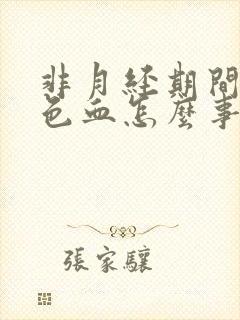 非月経期間
色血怎麼事
張家驤